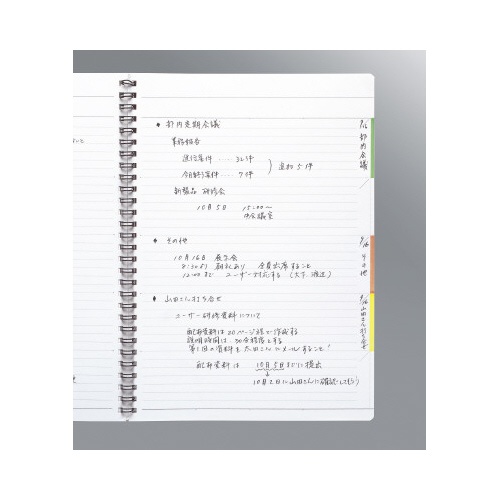 ◆ 部内定期会議
業務報告
進行案件 ‥‥ 32件
今日終了案件 ‥‥ 7件
追加 5件
新製品 研修会
10月5日 15:00〜
中会議室
◆ その他
10月16日 展示会
8:30より 朝礼あり 全員出席すること
12:00まで ユーザー対応する (大下、渡辺)
◆ 山田さん打ち合せ
ユーザー研修資料について
配布資料は20ページ程で作成する
説明時間は30分程度とする
第1回の資料を太田さんにメールすること!
配布資料は 10月5日までに提出
10月2日に山田さんに確認しておく)
9/16 部内会議
9/16 その他
9/16 山田さん打ち合せ